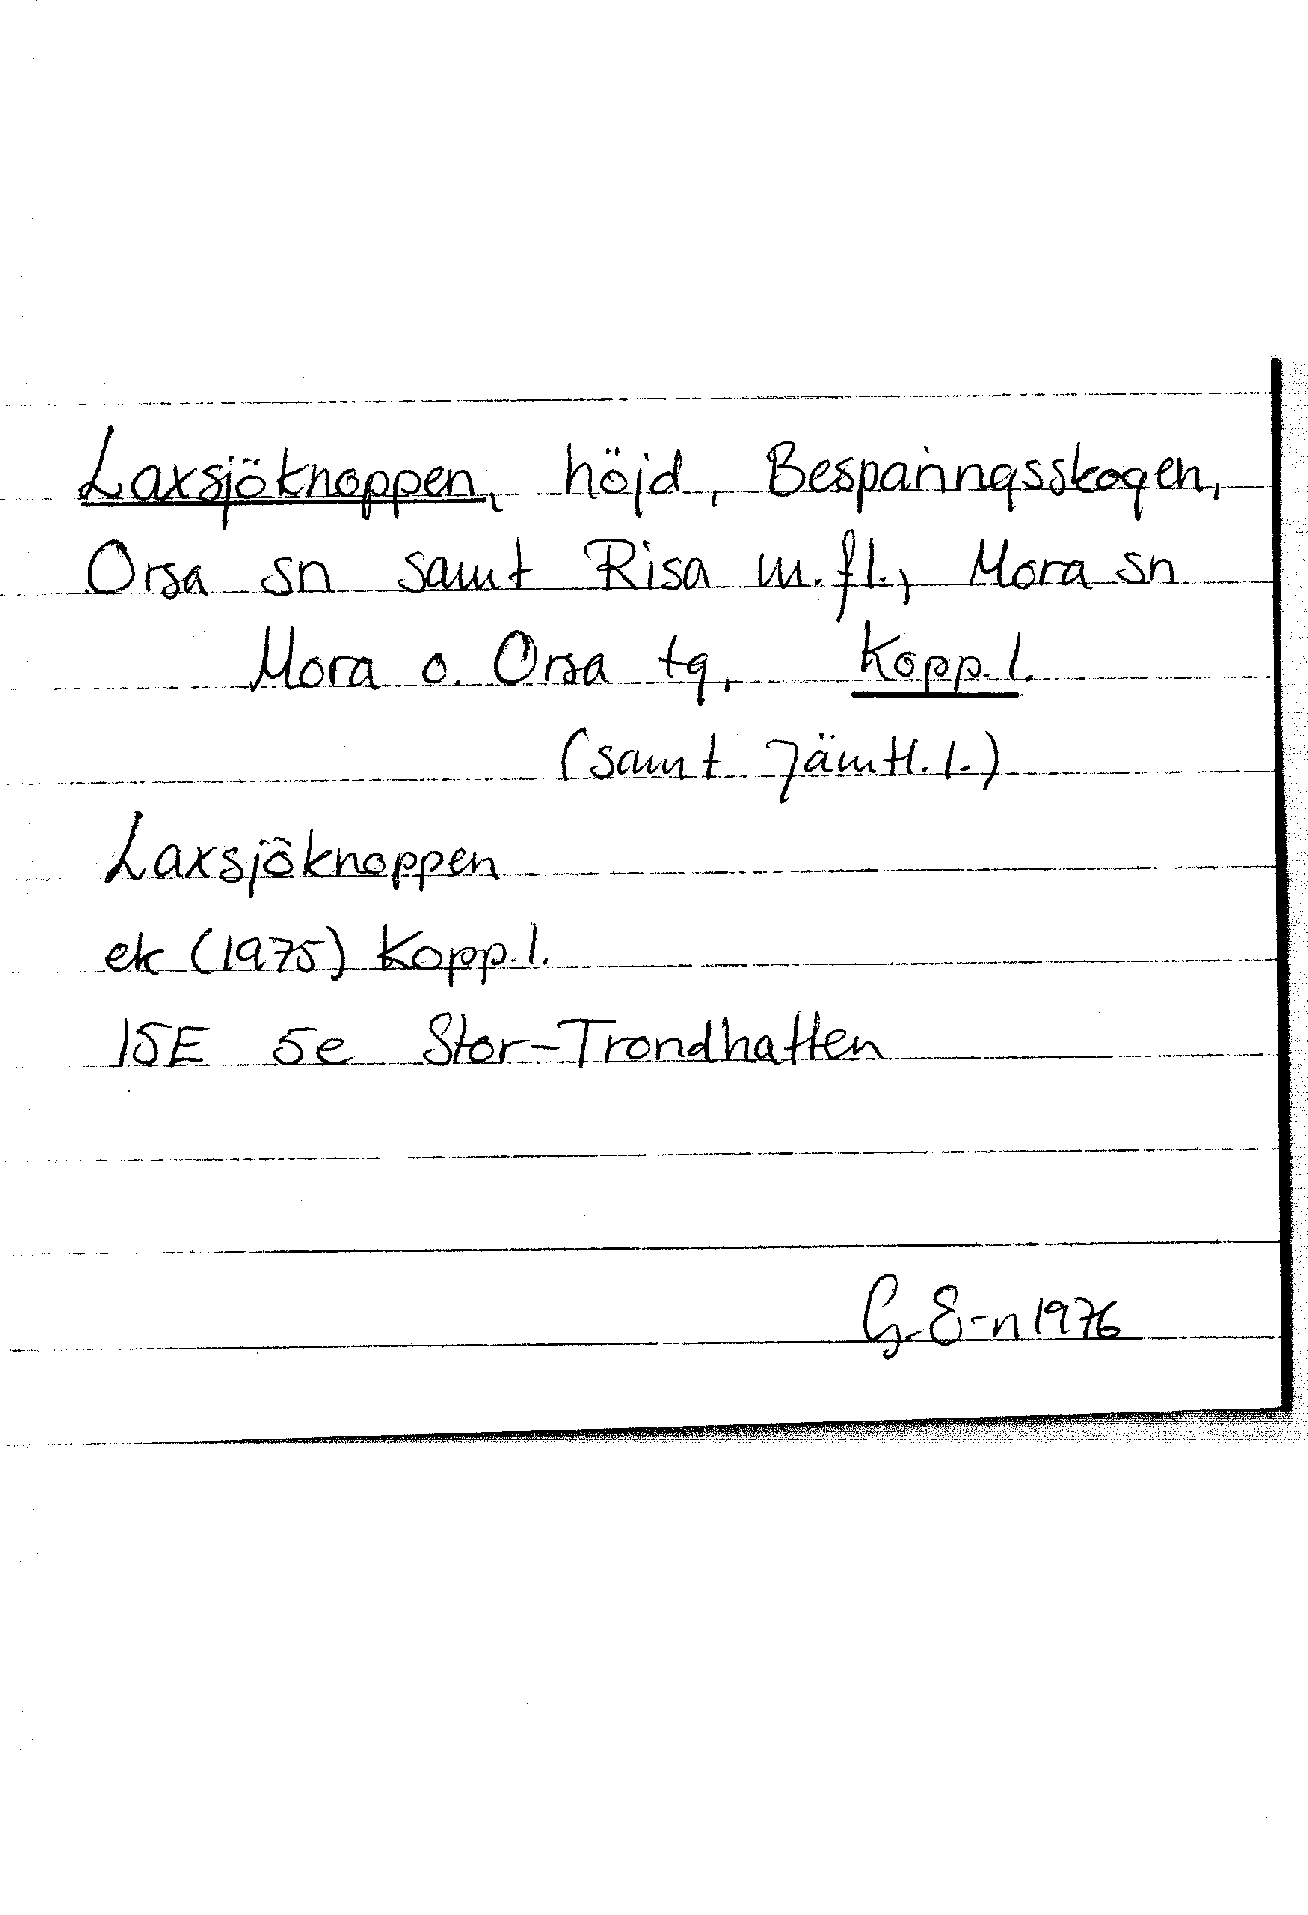 Laxsjöknoppen, höjd, Besparingsskogen,
Orsa sn samt Risa m.fl., Mora sn
Mora o. Orsa tg, Kopp.l.
(samt Jämtl.l.)
Laxsjöknoppen
ek (1975) Kopp.l.
15E 5e Stor-Trondhatten
G.E-n 1976